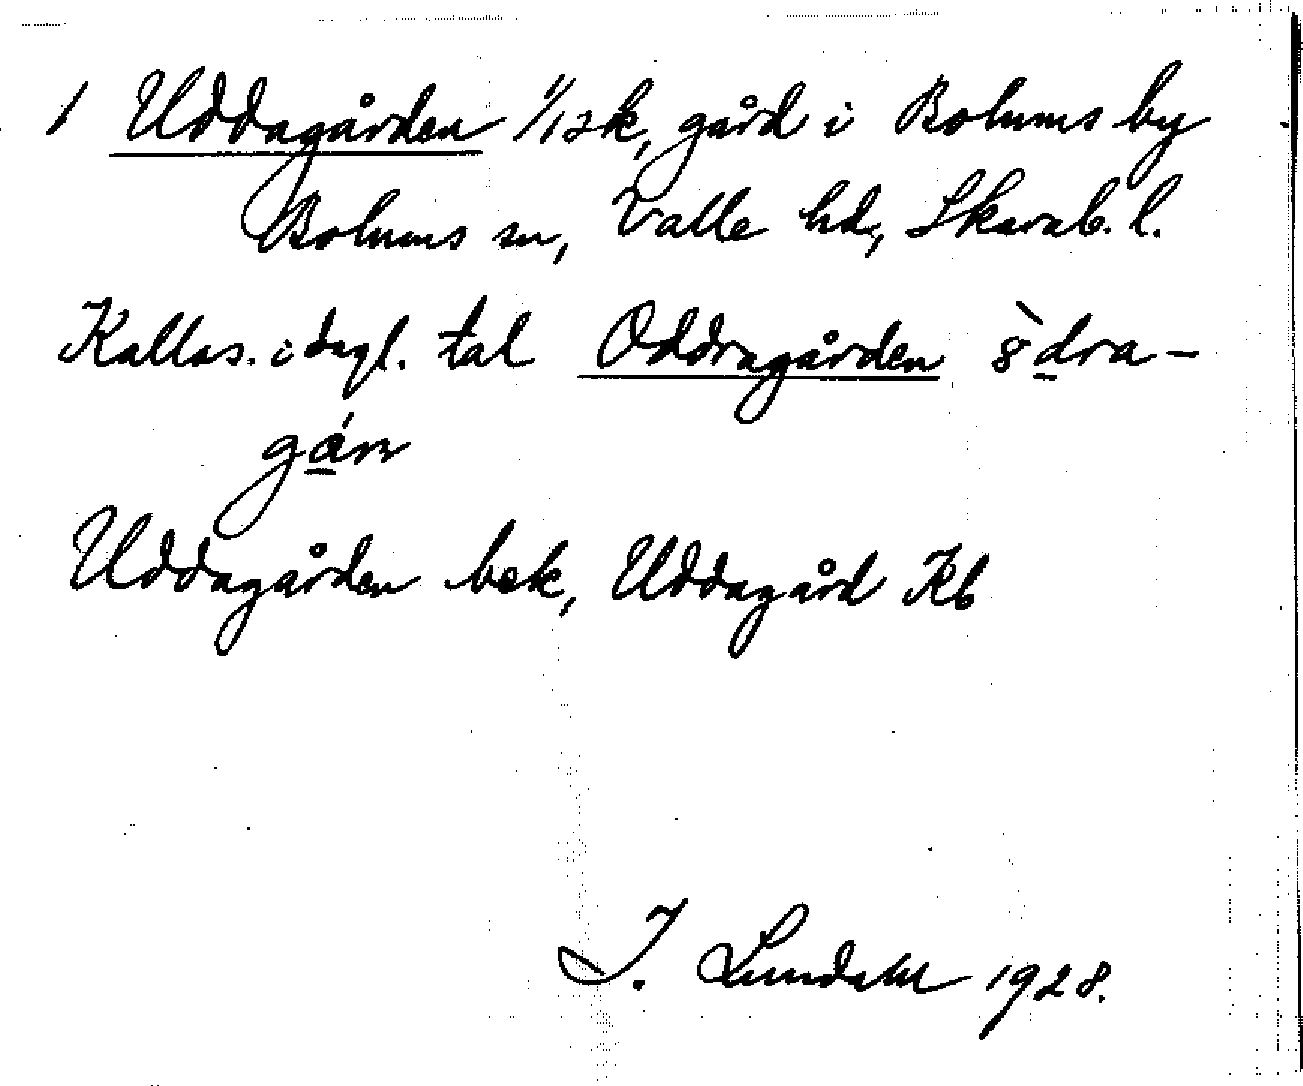 1 Uddagården 1/12 k, gård i Bolums by
Bolums sn, Valle hd, Skarab. l.
Kallas. i dagl. tal Oddragården 8̀dra-
gán
Uddagården bek, Uddagård Kb
I. Lundahl 1928.